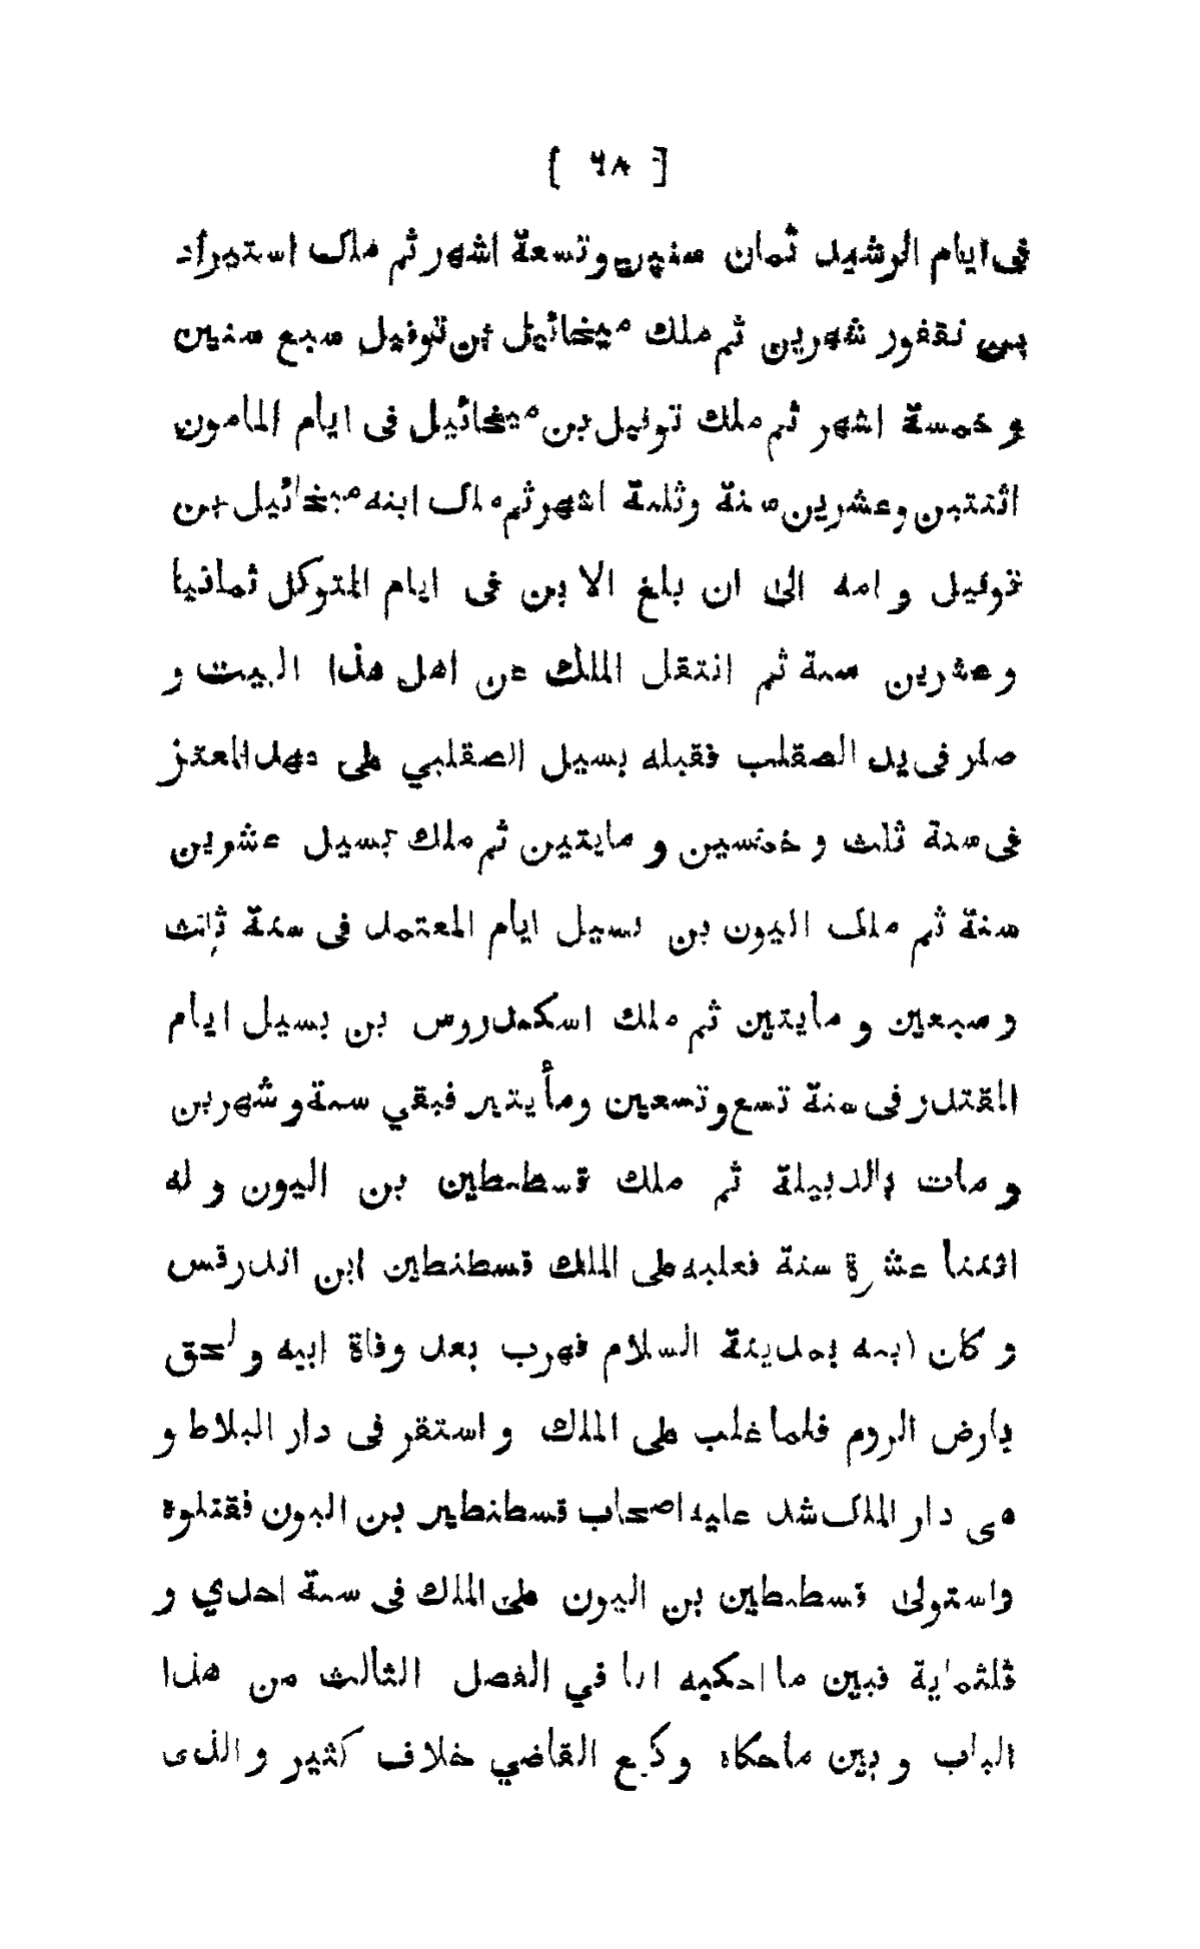 [ ٦٨ ]
فى ايام الرشيد ثمان سنين وتسعة اشهر ثم ملك استيراد
بن نقفور شهرين ثم ملك ميخائيل بن توفيل سبع سنين
و خمسة اشهر ثم ملك توفيل بن ميخائيل فى ايام المامون
اثنتين وعشرين سنة وثلثة اشهر ثم ملك ابنه ميخائيل بن
توفيل و امه الى ان بلغ الابن فى ايام المتوكل ثمانيا
و عشرين سنة ثم انتقل الملك عن اهل هذا البيت و
صار فى يد الصقلب فقبله بسيل الصقلبي على عهد المعتز
فى سنة ثلث و خمسين و مايتين ثم ملك بسيل عشرين
سنة ثم ملك اليون بن بسيل ايام المعتمد فى سنة ثلث
و سبعين و مايتين ثم ملك اسكندروس بن بسيل ايام
المقتدر فى سنة تسع وتسعين ومأيتين فبقي سنة و شهرين
و مات بالدبيلة ثم ملك قسطنطين بن اليون و له
اثنتا عشرة سنة فغلبه على الملك قسطنطين ابن اندرقس
و كان ابنه بمدينة السلام فهرب بعد وفاة ابيه و لحق
بارض الروم فلما غلب على الملك و استقر فى دار البلاط و
هى دار الملك شد عليه اصحاب قسطنطين بن اليون فقتلوه
واستولى قسطنطين بن اليون على الملك فى سنة احدي و
ثلثماية فبين ما احكيه انا في الفصل الثالث من هذا
الباب و بين ماحكاه وكيع القاضي خلاف كثير و الذى